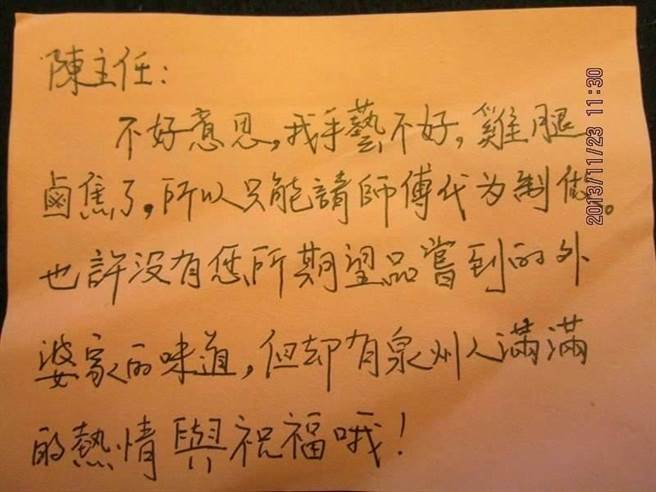 陳主任：
不好意思，我手藝不好，雞腿
鹵焦了，所以只能請師傅代为制做。
也許没有您所期望品嘗到的外
婆家的味道，但却有泉州人滿滿
的熱情與祝福哦！
2013/11/23 11:30